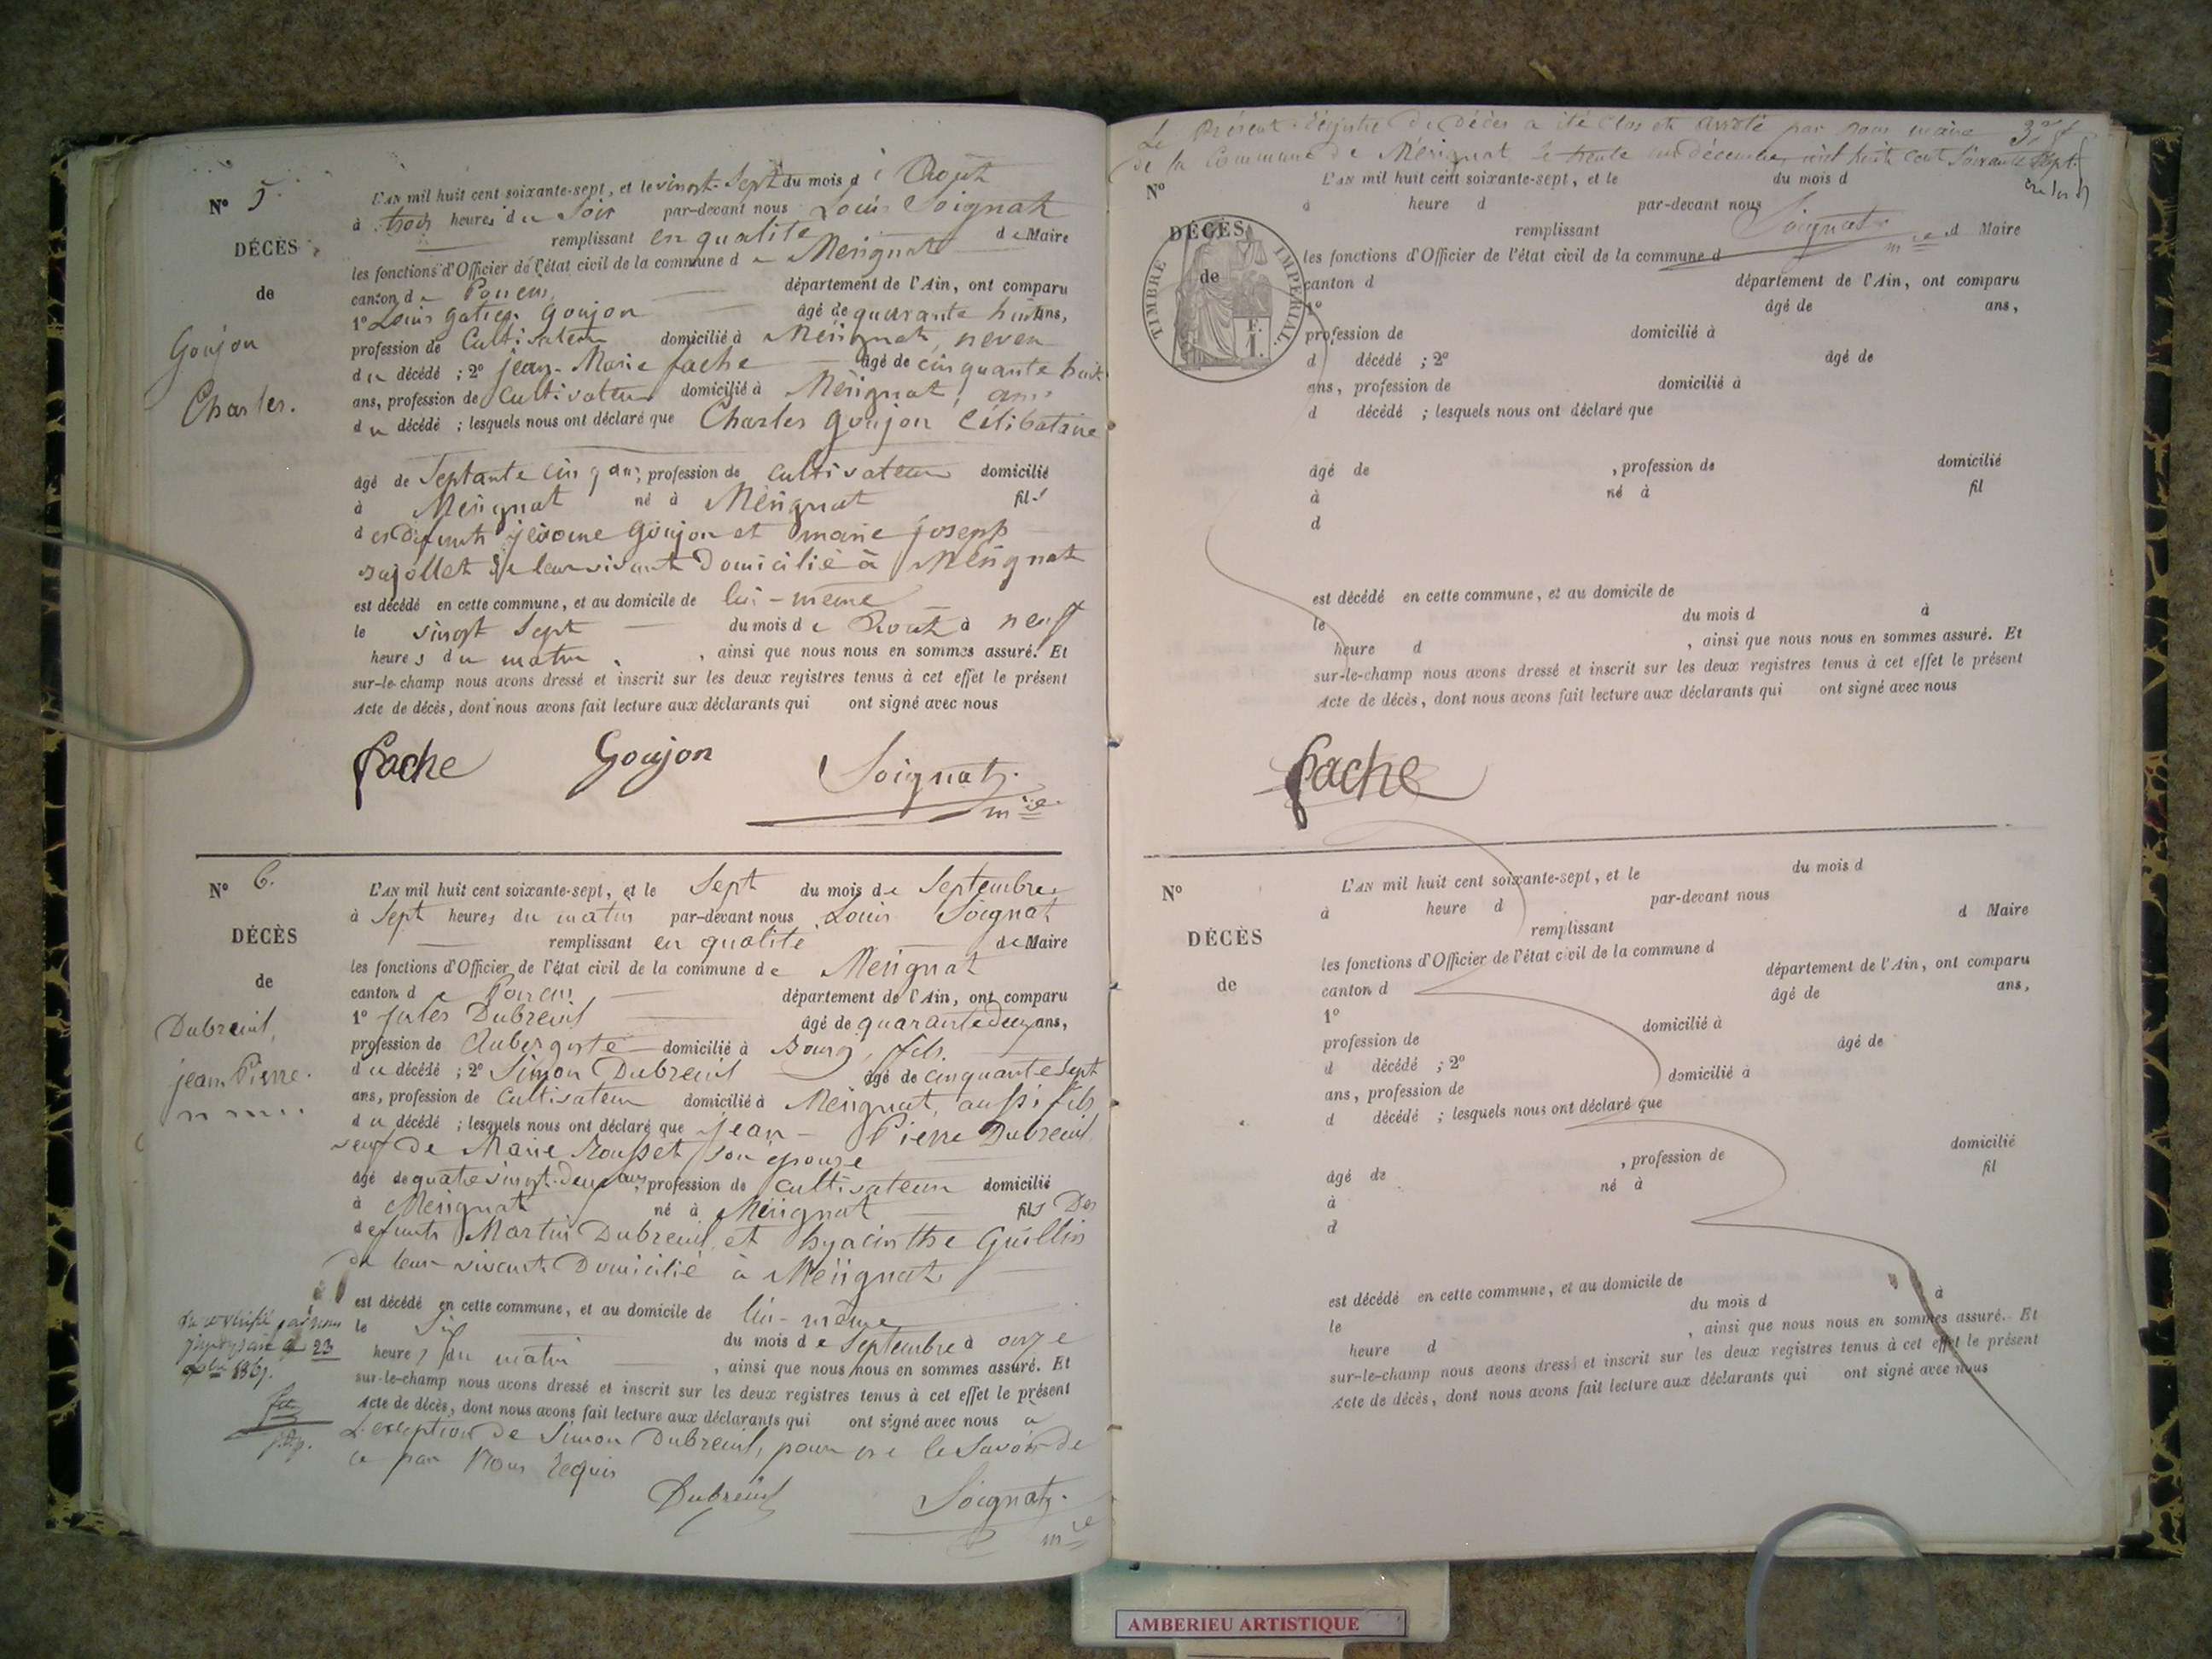 N° 5.
L'AN mil huit cent soixante-sept, et le vingt-sept du mois d'Août
à trois heures du soir par-devant nous Louis Soignat
remplissant en qualité de Maire
DÉCÈS
les fonctions d'Officier de l'état civil de la commune de Mérignat
de
canton de Poncin département de l'Ain, ont comparu
1° Louis Goujon âgé de quarante huit ans,
Goujon
profession de Cultivateur domicilié à Mérignat, neveu
du décédé ; 2° jean-Marie fache âgé de cinquante huit
Charles.
ans, profession de Cultivateur domicilié à Mérignat, ami
du décédé ; lesquels nous ont déclaré que Charles Goujon Célibataire
âgé de Septante cinq ans, profession de cultivateur domicilié
à Mérignat né à Mérignat fils
des défunts jérome Goujon et marie joseph
de leur vivant Domicilié à Mérignat
est décédé en cette commune, et au domicile de lui-même
le vingt Sept du mois de Août à neuf
heures du matin, ainsi que nous nous en sommes assuré. Et
sur-le-champ nous avons dressé et inscrit sur les deux registres tenus à cet effet le présent
Acte de décès, dont nous avons fait lecture aux déclarants qui ont signé avec nous
fache Goujon Soignat
mre
N° 6.
L'AN mil huit cent soixante-sept, et le Sept du mois de Septembre
à Sept heures du matin par-devant nous Louis Soignat
DÉCÈS
remplissant en qualité de Maire
les fonctions d'Officier de l'état civil de la commune de Mérignat
de
canton de Poncin département de l'Ain, ont comparu
1° Jules Dubreuil âgé de quarante deux ans,
Dubreuil,
profession de Aubergiste domicilié à Bourg, fils
du décédé ; 2° Simon Dubreuil âgé de cinquante Sept
jean Pierre.
ans, profession de Cultivateur domicilié à Mérignat, aussi fils
du décédé ; lesquels nous ont déclaré que jean-Pierre Dubreuil
veuf de Marie Rousset son épouse
âgé de quatre vingt-deux ans, profession de Cultivateur domicilié
à Mérignat né à Mérignat fils Des
défunts Martin Dubreuil et hyacinthe Guillin
de leur vivant Domicilié à Mérignat
est décédé en cette commune, et au domicile de lui-même
le Six du mois de Septembre à onze
heures du matin, ainsi que nous nous en sommes assuré. Et
sur-le-champ nous avons dressé et inscrit sur les deux registres tenus à cet effet le présent
Acte de décès, dont nous avons fait lecture aux déclarants qui ont signé avec nous à
L'exception de Simon Dubreuil, pour ne le Savoir de
ce par Nous requis
vu et vérifié par nous
juge de paix le 23
1867.
Dubreuil Soignat
mre
Le Présent Régistre de Décès a été Clos et arrêté par nous maire
de la Commune de Mérignat le trente un décembre mil huit cent Soixante Sept.
N°
L'AN mil huit cent soixante-sept, et le du mois d
à heure d par-devant nous
Soignat
mre
DÉCÈS
remplissant d Maire
les fonctions d'Officier de l'état civil de la commune d
TIMBRE IMPÉRIAL.
F.
1.
de
canton d département de l'Ain, ont comparu
1° âgé de ans,
profession de domicilié à
d décédé ; 2° âgé de
ans, profession de domicilié à
d décédé ; lesquels nous ont déclaré que
âgé de , profession de domicilié
à né à fil
d
est décédé en cette commune, et au domicile de
le du mois d à
heure d , ainsi que nous nous en sommes assuré. Et
sur-le-champ nous avons dressé et inscrit sur les deux registres tenus à cet effet le présent
Acte de décès, dont nous avons fait lecture aux déclarants qui ont signé avec nous
fache
N°
L'AN mil huit cent soixante-sept, et le du mois d
à heure d par-devant nous
DÉCÈS
remplissant d Maire
les fonctions d'Officier de l'état civil de la commune d
de
canton d département de l'Ain, ont comparu
1° âgé de ans,
profession de domicilié à
d décédé ; 2° âgé de
ans, profession de domicilié à
d décédé ; lesquels nous ont déclaré que
âgé de , profession de domicilié
à né à fil
d
est décédé en cette commune, et au domicile de
le du mois d à
heure d , ainsi que nous nous en sommes assuré. Et
sur-le-champ nous avons dressé et inscrit sur les deux registres tenus à cet effet le présent
Acte de décès, dont nous avons fait lecture aux déclarants qui ont signé avec nous
AMBERIEU ARTISTIQUE